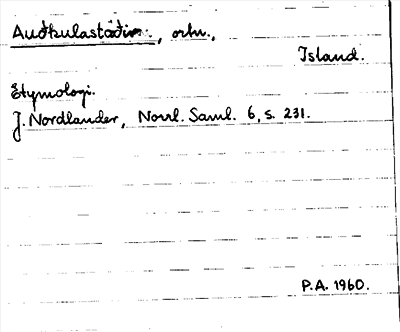 Auðkulastaðir, ortn.,
Island.
Etymologi.
J. Nordlander, Norrl. Saml. 6, s. 231.
P.A. 1960.